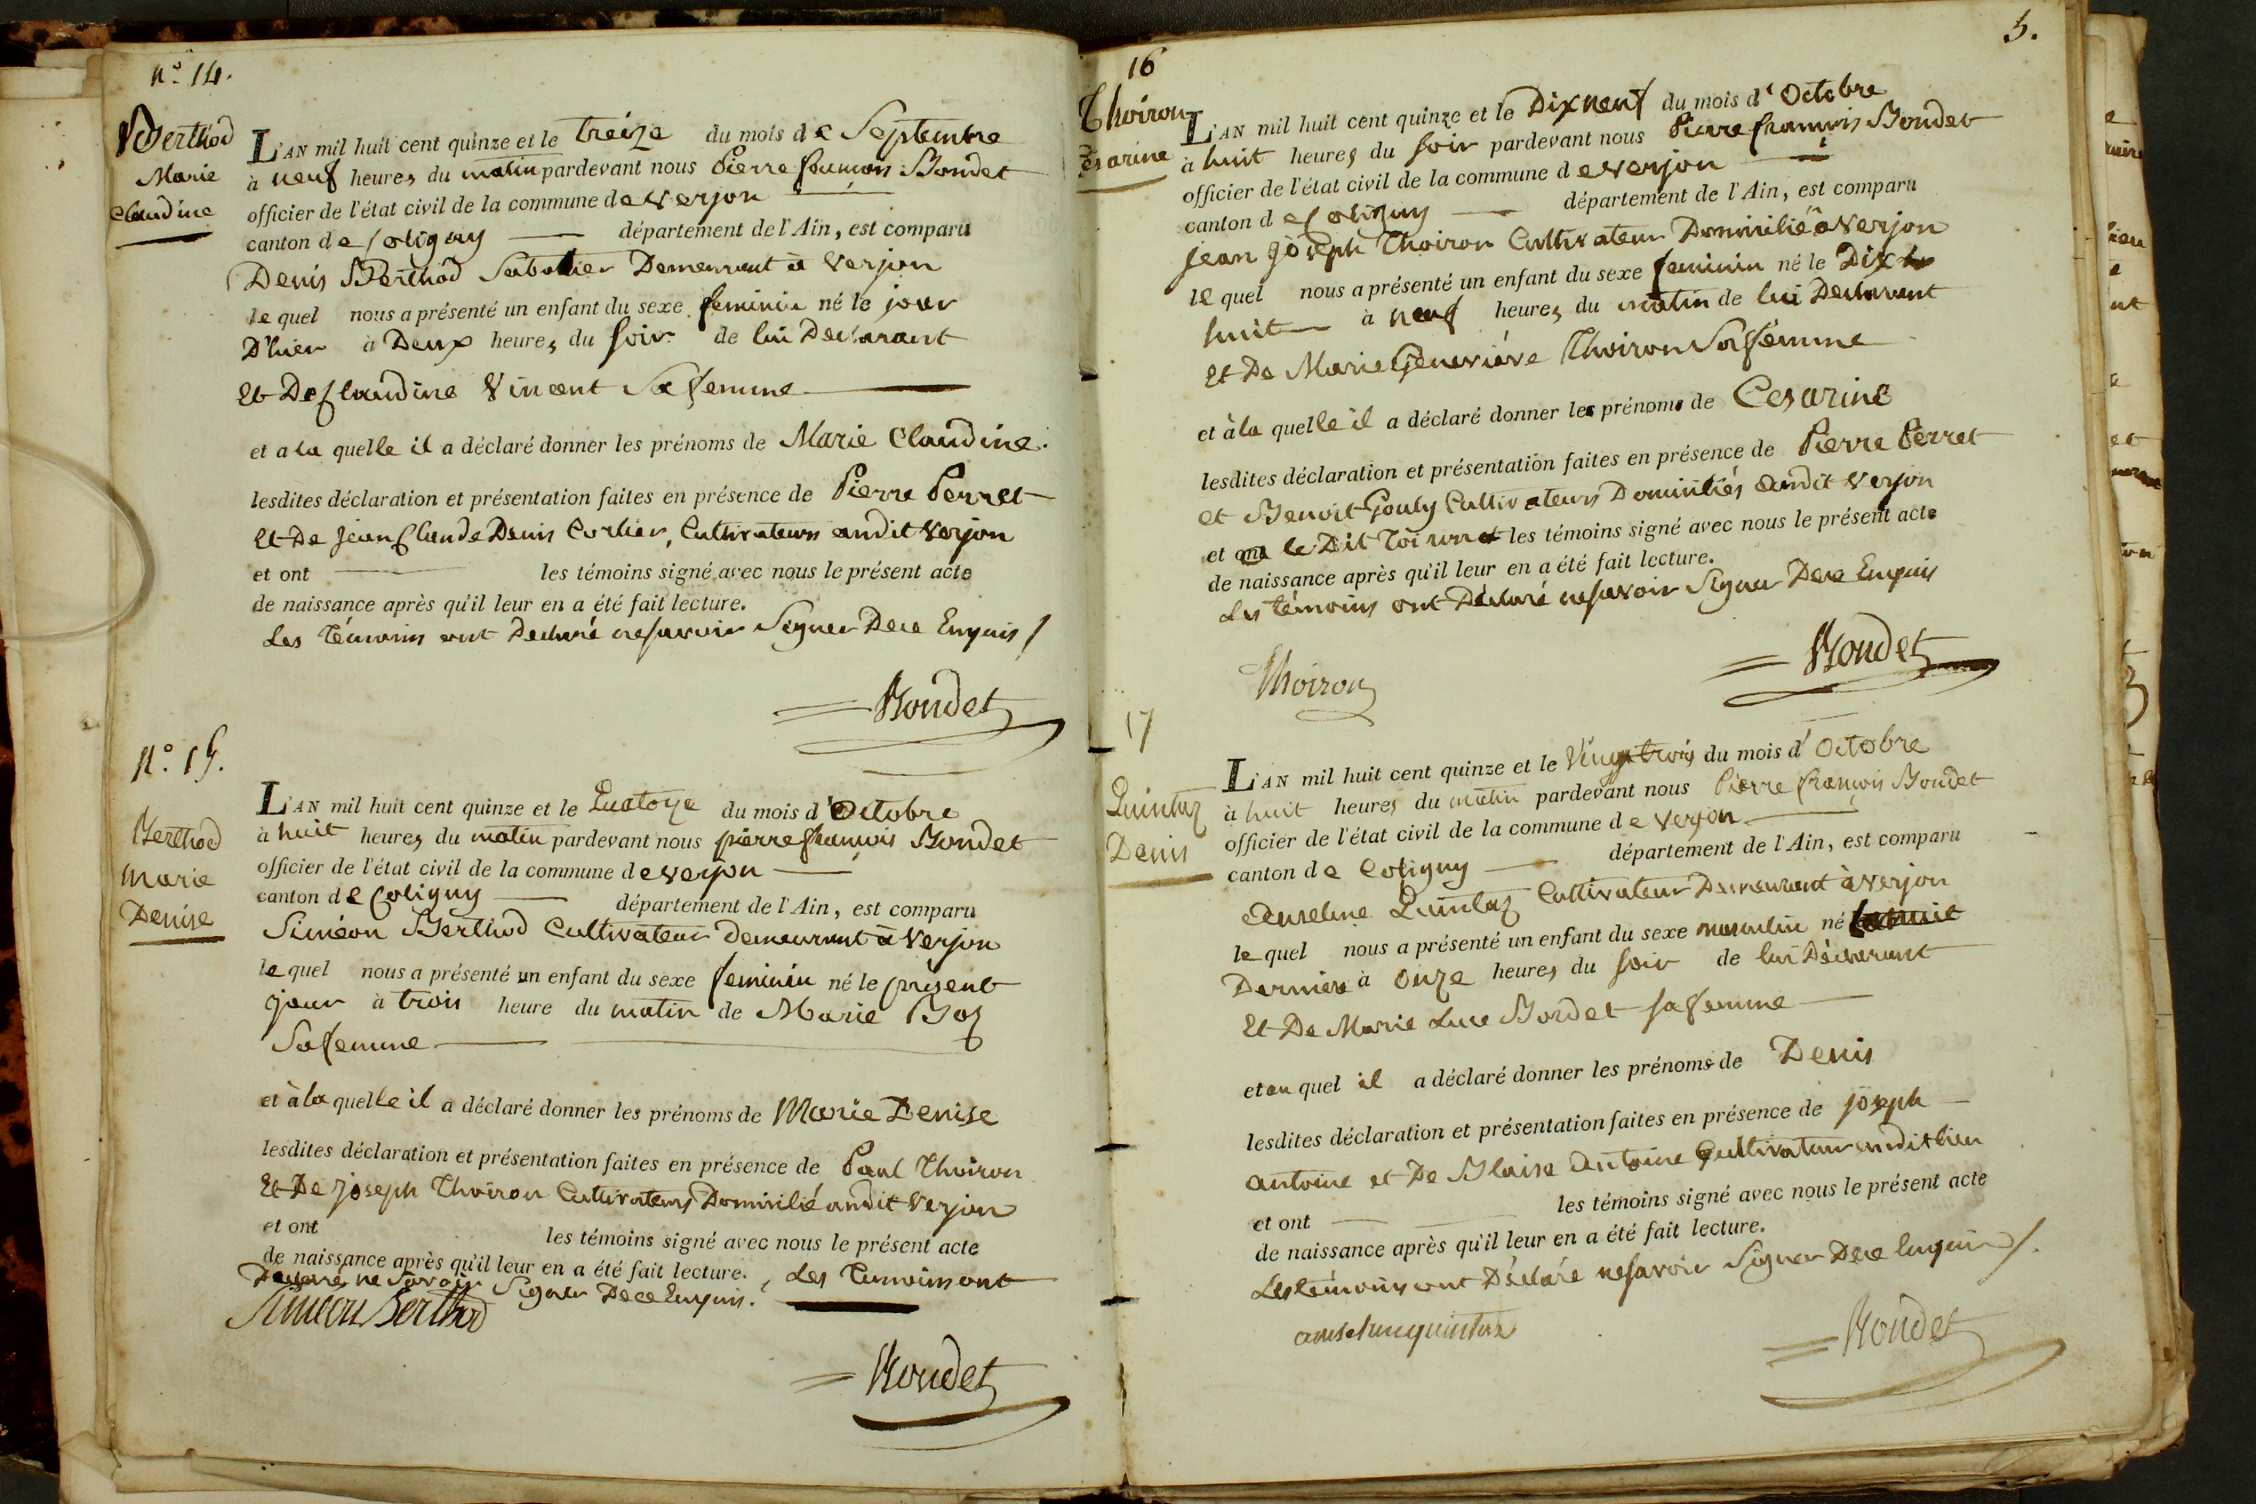 n.° 14.
Berthod
Marie
Claudine
L'AN mil huit cent quinze et le treize du mois de Septembre
à neuf heures du matin pardevant nous Pierre françois Bondet
officier de l'état civil de la commune de verjon
canton de Coligny département de l'Ain, est comparu
Denis Berthod Sabottier Demeurant à Verjon
lequel nous a présenté un enfant du sexe feminin né le jour
D'hier à Deux heures du soir de lui Declarant
Et De Claudine Vincent Sa femme
et a la quelle il a déclaré donner les prénoms de Marie Claudine.
lesdites déclaration et présentation faites en présence de Pierre Perret
Et De Jean Claude Denis Corlier, Cultivateurs audit Verjon
et ont les témoins signé avec nous le présent acte
de naissance après qu'il leur en a été fait lecture.
Les témoins ont Declaré ne savoir Signer De ce Enquis /
Bondet
N.° 15.
Berthod
Marie
Denise
L'AN mil huit cent quinze et le Quatorze du mois d'Octobre
à huit heures du matin pardevant nous pierre françois Bondet
officier de l'état civil de la commune de verjon
canton de Coligny département de l'Ain, est comparu
Siméon Berthod Cultivateur demeurant à Verjon
lequel nous a présenté un enfant du sexe feminin né le présent
jour à trois heure du matin de Marie Boz
Sa femme
et à la quelle il a déclaré donner les prénoms de Marie Denise
lesdites déclaration et présentation faites en présence de Paul Thoiron
Et De joseph Thoiron Cultivateurs Domicilié audit Verjon
et ont les témoins signé avec nous le présent acte
de naissance après qu'il leur en a été fait lecture. Les Temoins ont
Declaré ne Savoir Signer De ce Enquis.
Siméon Berthod
Bondet
5.
16
Thoiron
Cesarine
L'AN mil huit cent quinze et le Dix neuf du mois d'Octobre
à huit heures du soir pardevant nous Pierre françois Bondet
officier de l'état civil de la commune de verjon
canton de Coligny département de l'Ain, est comparu
Jean Joseph Thoiron Cultivateur Domicilié à Verjon
lequel nous a présenté un enfant du sexe feminin né le Dix
huit à neuf heures du matin de lui Declarant
Et De Marie Geneviève Thoiron Sa femme
et à la quelle il a déclaré donner les prénoms de Cesarine
lesdites déclaration et présentation faites en présence de Pierre Perret
et Benoit Gouly Cultivateurs Domiciliés audit Verjon
et ont le Dit Toiron et les témoins signé avec nous le présent acte
de naissance après qu'il leur en a été fait lecture.
Les témoins ont Déclaré ne savoir Signer De ce Enquis
Thoiron
Bondet
17
Quintaz
Denis
L'AN mil huit cent quinze et le Vingt trois du mois d'Octobre
à huit heures du matin pardevant nous Pierre françois Bondet
officier de l'état civil de la commune de verjon
canton de Coligny département de l'Ain, est comparu
Anselme Quintaz Cultivateur Demeurant à Verjon
lequel nous a présenté un enfant du sexe masculin né la nuit
Derniere à Onze heures du soir de lui Déclarant
Et De Marie Luce Bordet sa femme
et au quel il a déclaré donner les prénoms de Denis
lesdites déclaration et présentation faites en présence de joseph
antoine et De Blaise Antoine Cultivateur audit lieu
et ont les témoins signé avec nous le présent acte
de naissance après qu'il leur en a été fait lecture.
Les témoins ont Déclaré ne savoir Signer De ce Enquis /.
anselme quintaz
Bondet